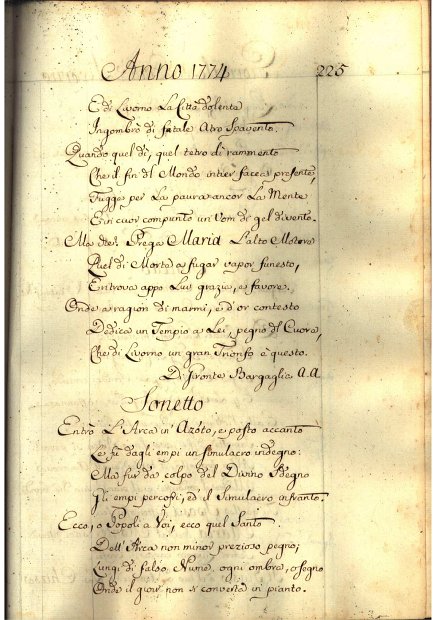 Anno 1774 225
E di Livorno La Città dolente
Ingombrò di fatale Atro Spavento.
Quando quel dì, quel tetro dì rammento
Che il fin dl Mondo intier facea presente,
Fugge per La paura ancor La Mente
E in cuor compunto un Vom di gel divento.
Ma Prega Maria L'alto Motore
Quel di Morte a fugar vapor funesto,
E ritrova appo Lui grazia, e favore.
Onde a ragion di marmi, e d'or contesto
Dedica un Tempio a Lei, pegno dl Cuore,
Che di Livorno un gran Trionfo è questo.
Di Bargaglia A.A
Sonetto
Entrò L'Arca in Azoto, e posto accanto
Le fù dagli empi un simulacro indegno:
Ma fur da colpo del Divino Sdegno
Gli empi percossi, ed il Simulacro infranto.
Ecco, o Popoli a Voi, ecco quel Santo
Dell'Arca non minor prezioso pegno;
Lungi di falso Nume ogni ombra, o segno
Onde il gioir non si converta in pianto.